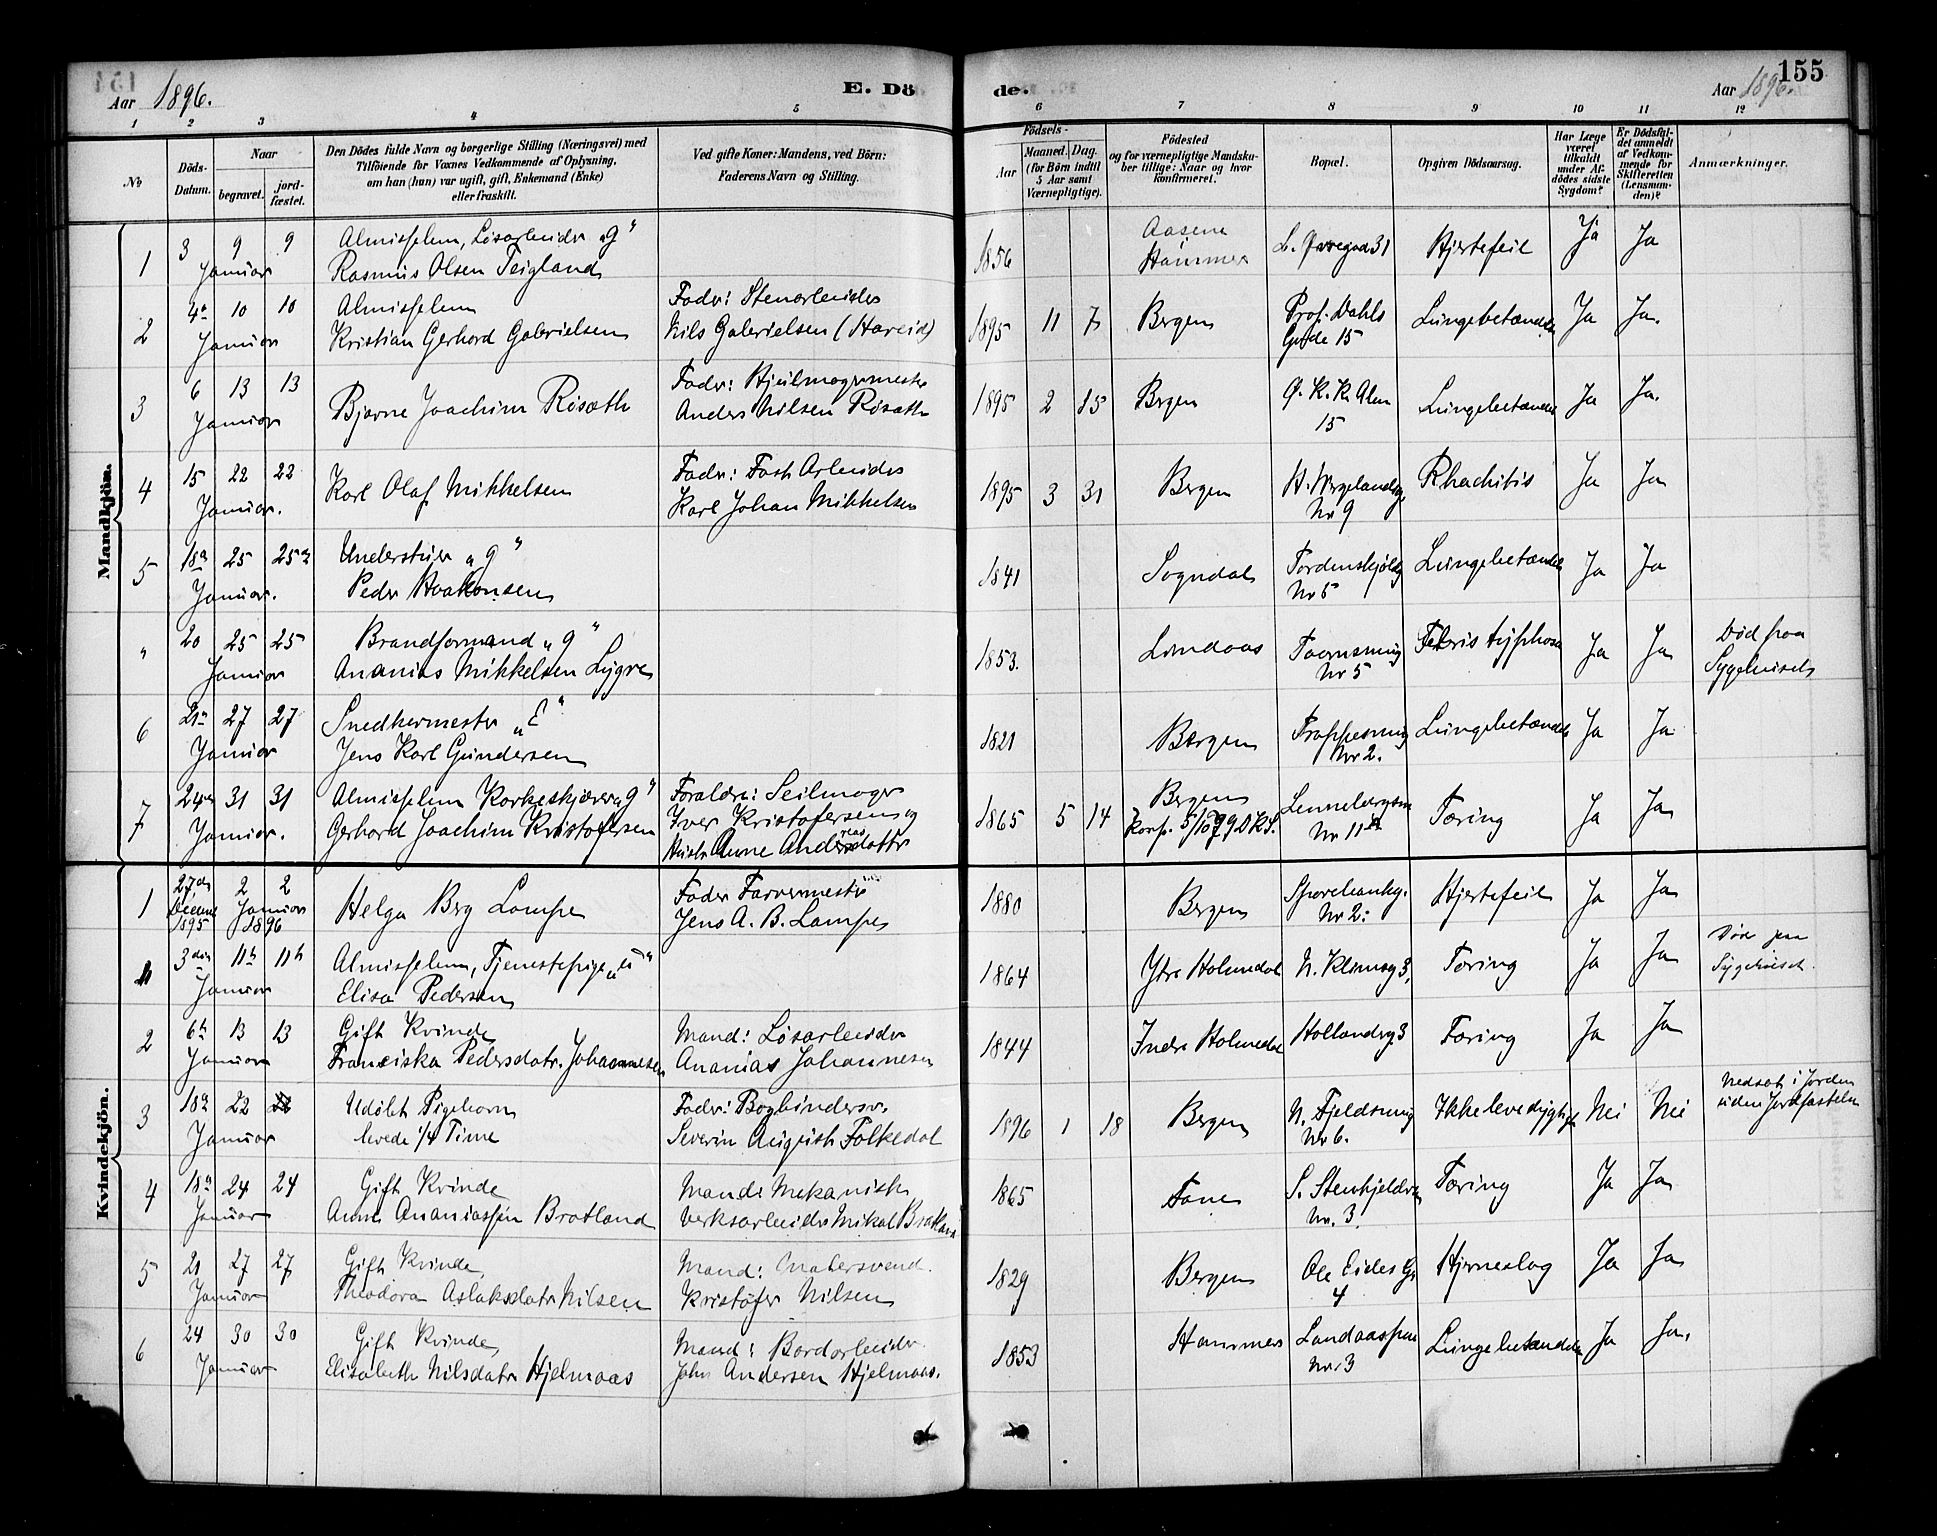 155
Aar 1896.
E. Dö
de.
Aar 1896.
1 2 3 4 5 6 7 8 9 10 11 12
No
Döds-
Datum.
Naar
begravet.
jord-
fæstet.
Den Dödes fulde Navn og borgerlige Stilling (Næringsvei) med
Tilföiende for Voxnes Vedkommende af Oplysning,
om han (hun) var ugift, gift, Enkemand (Enke)
eller fraskilt.
Ved gifte Koner: Mandens, ved Börn:
Faderens Navn og Stilling.
Födsels-
Aar
Maaned.
Dag.
(for Börn indtil
5 Aar samt
Værnepligtige).
Födested
og for værnepligtige Mandska-
ber tillige: Naar og hvor
konfirmeret.
Bopæl.
Opgiven Dödsaarsag.
Har Læge
været
tilkaldt
under Af-
dödes sidste
Sygdom?
Er Dödsfal-
det anmeldt
af Vedkom-
mende for
Skifteretten
(Lensman-
den)?
Anmærkninger.
Mandkjön.
1 3 9 9 Almisselem, Løsarbeider „g“ Aasene Ja Ja
Januar Rasmus Olsen Teigland 1856 Hammer 31 Hjertefeil
2 4de 10 10 Almisselem Fader: Stenarbeider Prof. Dahls
Januar Kristian Gerhard Gabrielsen Nils Gabrielsen (Hareid) 1895 11 7 Bergen Gade 15 Lungebetændelse Ja Ja.
3 6 13 13 Fader: Hjulmagermester
Januar Bjarne Joachim Røsæth Anders Nilsen Røsæth 1895 2 15 Bergen 15 Lungebetændelse Ja Ja.
4 15 22 22 Karl Olaf Mikkelsen Fader: Fast Arbeider H. Wergelandsg. Rhachitis Ja Ja
Januar. Karl Johan Mikkelsen 1895 3 31 Bergen No 9
5 18de 25 25de Understøt. „g“ 1841 Sogndal Tordenskjoldsg Lungebetændelse Ja Ja
Januar. Peder Haakonsen No 5
" 20 25 25 Brandformand „g“ 1853. Lindaas Febris typhosa Ja Ja Død paa
Januar Ananias Mikkelsen Lygre No 5 Sygehuset
6 21de 27 27 Snedkermester „E“ 1821 Bergen Trappesmug Lungebetændelse Ja Ja
Januar Jens Karl Gundersen No 2.
7 24de 31 31 Almisselem Korkeskjærer „g“ Forældre: Seilmager Bergen
Januar. Gerhard Joachim Kristofersen Iver Kristofersen og 1865 5 14 Konf. 5/10 79 D.K. No 11 Tæring Ja Ja
Hustru Anne Andersdatter
Kvindekjön.
1 27de 2 2 Helga Berg Lampe Fader Farvermester 1880 Bergen Sparebankg. Hjertefeil Ja Ja
Decemb Januar Jens A. B. Lampe No 2.
1895 1896
3die 11te 11te Almisselem, Tjenestepige „u“ 1864 Ytre Holmedal 3, Tæring Ja Ja Død paa
Januar Elisa Pedersen Sygehuset.
2 6te 13 13 Gift Kvinde Mand: Løsarbeider 1844 Indre Holmedal 3 Tæring Ja Ja
Januar Franciska Pedersdatr. Johannesen Ananias Johannesen
3 18de 22 22 Udøbt Pigebarn Fader: Bogbindersv. 1896 1 18 Bergen N. Fjeldsmug Ikke levedygtig Nei Nei Nedsat i Jorden
Januar levede 1/4 Time Severin August Folkedal No 6. uden Jordfæstelse
4 18de 24 24 Gift Kvinde Mand: Mekanisk 1865 Fane Tæring Ja Ja
Januar Anne Bratland Verksarbeider Mikal Bratland No. 3.
5 21 27 27 Gift Kvinde Mand: Malersvend. 1829 Bergen Ole Eides G. Hjerneslag Ja Ja
Januar Theodora Aslaksdatr Nilsen Kristofer Nilsen 4
6 24 30 30 Gift Kvinde Mand: 1853 Hammer Lungebetændelse Ja Ja.
Januar Elisabeth Nilsdatr Hjelmaas John Andersen Hjelmaas. No. 3